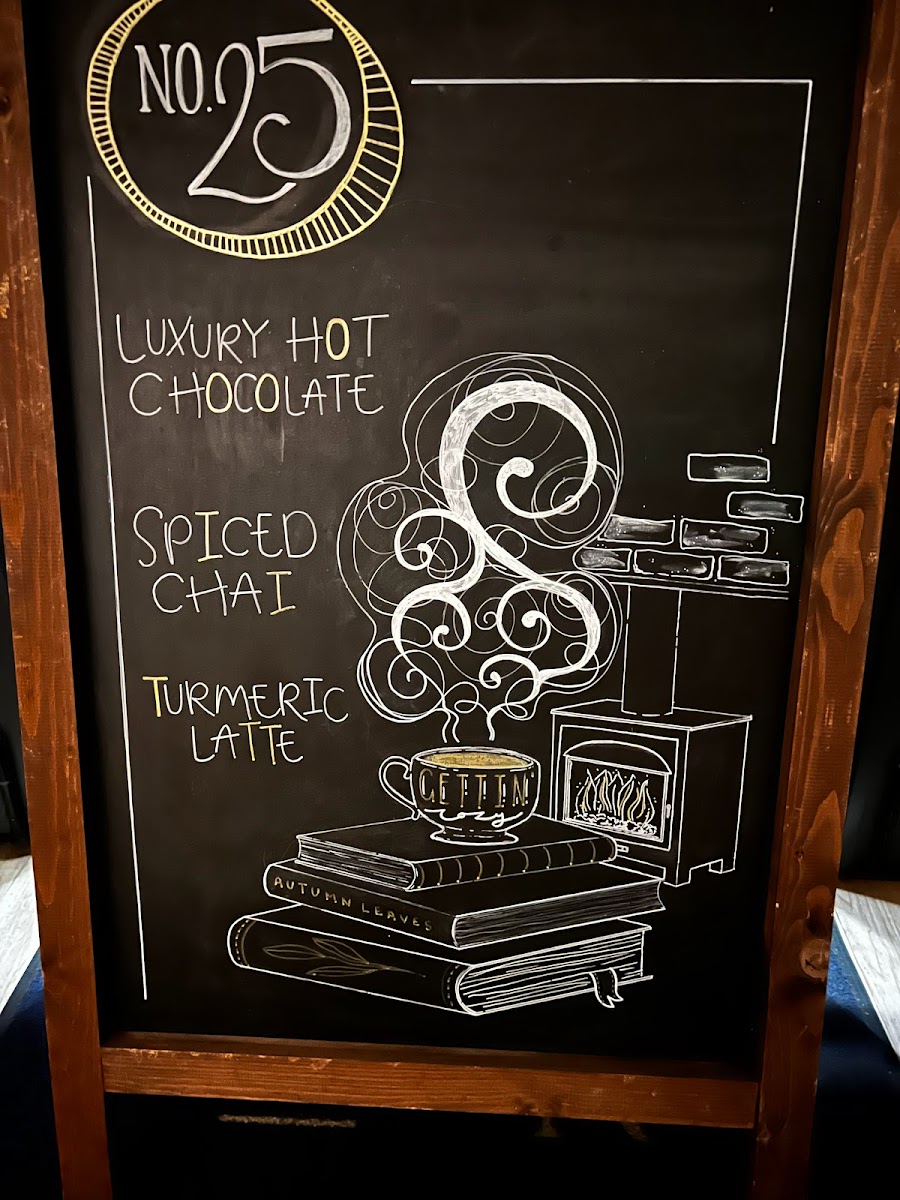 NO. 25
LUXURY HOT
CHOCOLATE
SPICED
CHAI
TURMERIC
LATTE
GETTIN'
cozy
AUTUMN LEAVES